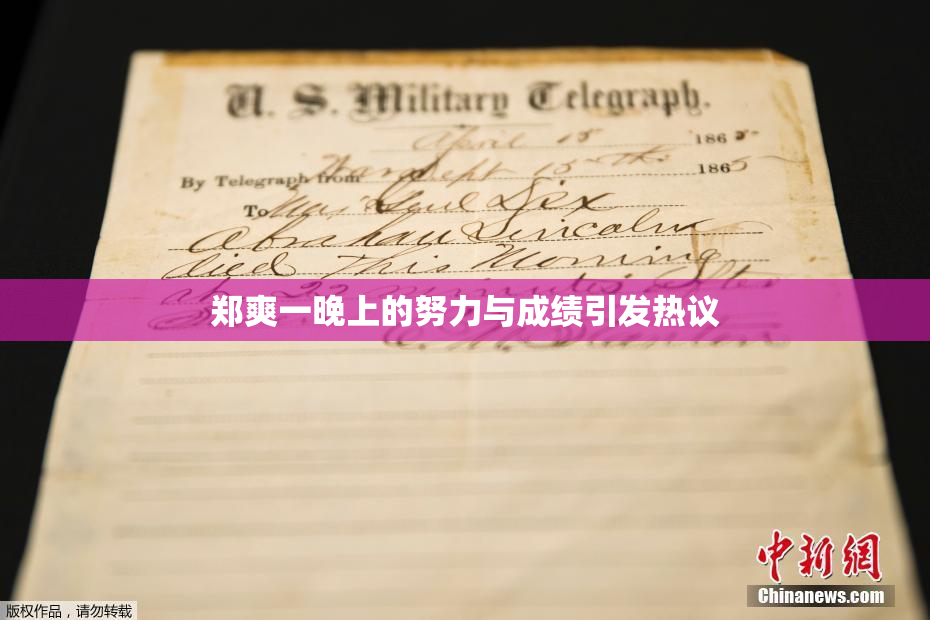 U. S. Military Telegraph.
April 15 1865
By Telegraph from War Dept 15th 1865
To Maj Genl Dix
Abraham Lincoln
died This Morning
at 22 minutes after
郑爽一晚上的努力与成绩引发热议
Stanton
中新網
Chinanews.com
版权作品，请勿转载